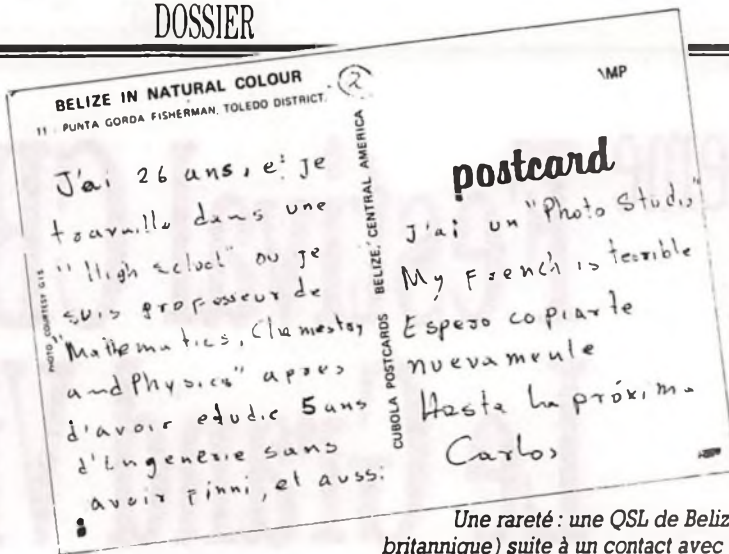 DOSSIER
BELIZE IN NATURAL COLOUR
11 - PUNTA GORDA FISHERMAN, TOLEDO DISTRICT.
2
J'ai 26 ans, et je
travaille dans une
"High School" ou je
suis professeur de
"Mathematics, Chemestry
and Physics" apres
d'avoir etudie 5 ans
d'Engenerie sans
avoir finni, et aussi
PHOTO COURTESY GIS
CUBOLA POSTCARDS BELIZE, CENTRAL AMERICA
\MP
postcard
J'ai un "Photo Studio"
My French is terrible
Espero copiarte
nuevamente
Hasta la próxima
Carlos
Une rareté : une QSL de Beliz
britannique) suite à un contact avec